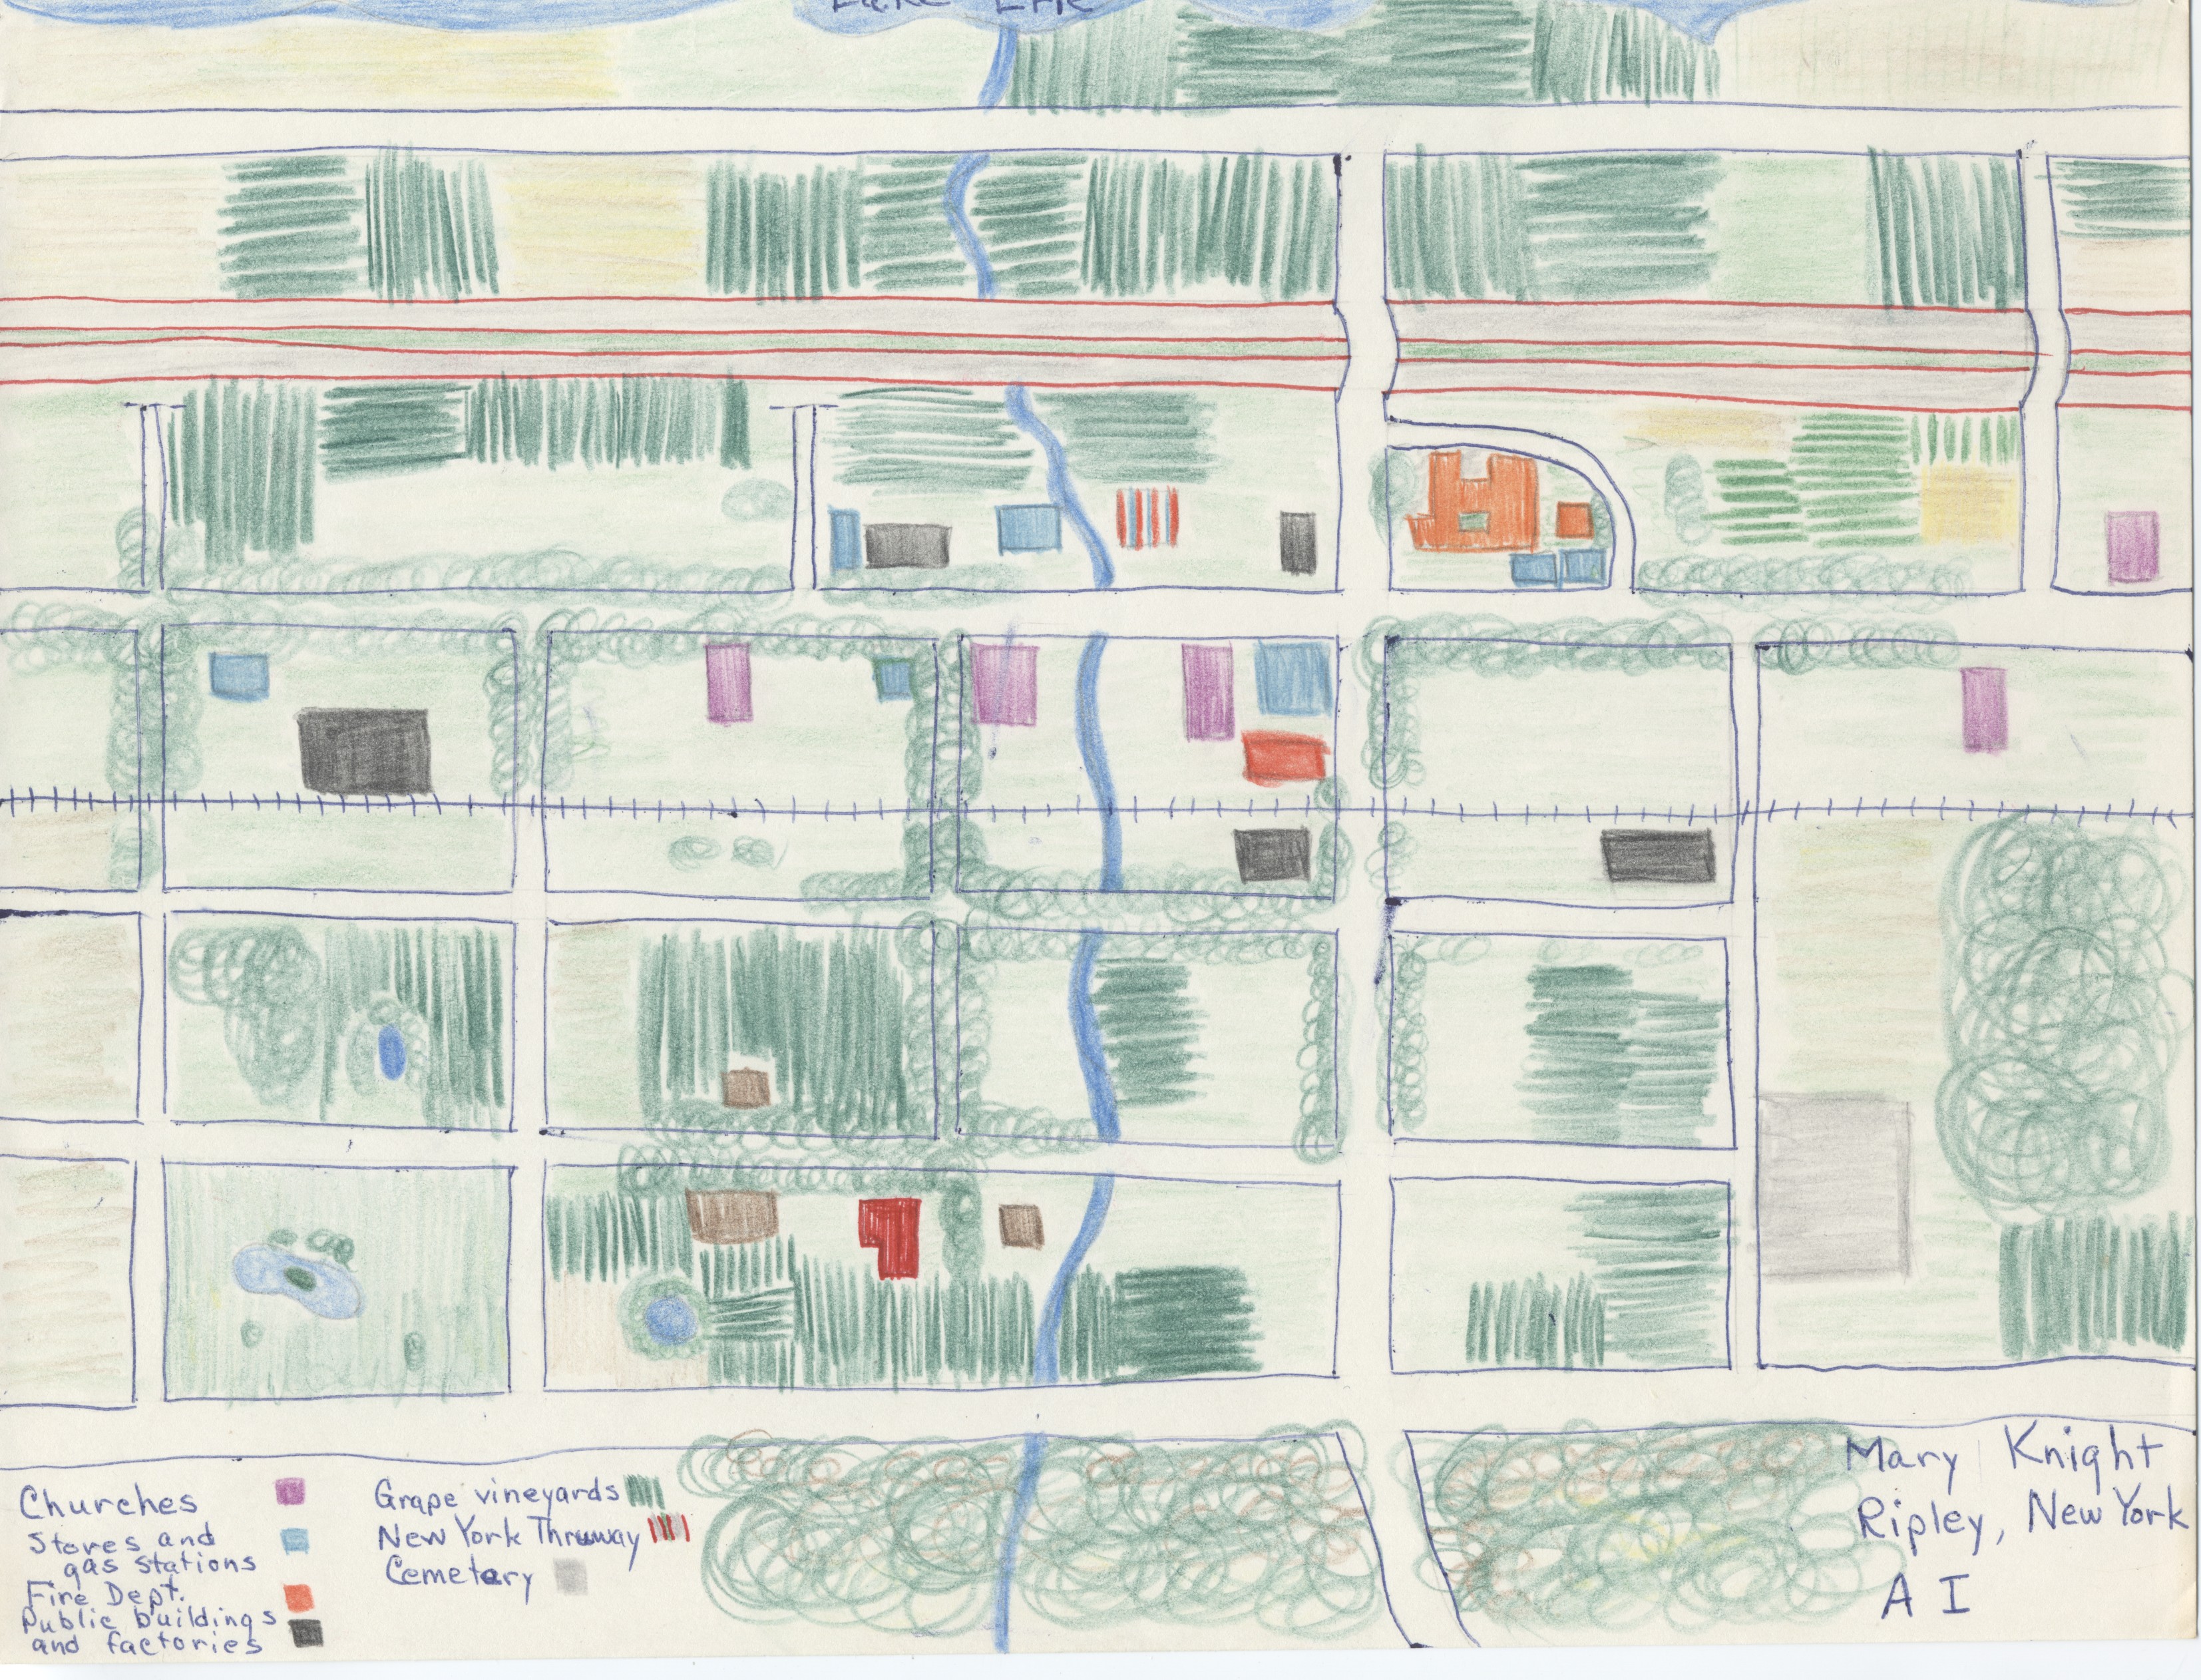 Lake Erie
Churches
Stores and
gas stations
Fire Dept.
Public buildings
and factories
Grape vineyards
New York Thruway
Cemetery
Mary Knight
Ripley, New York
A I